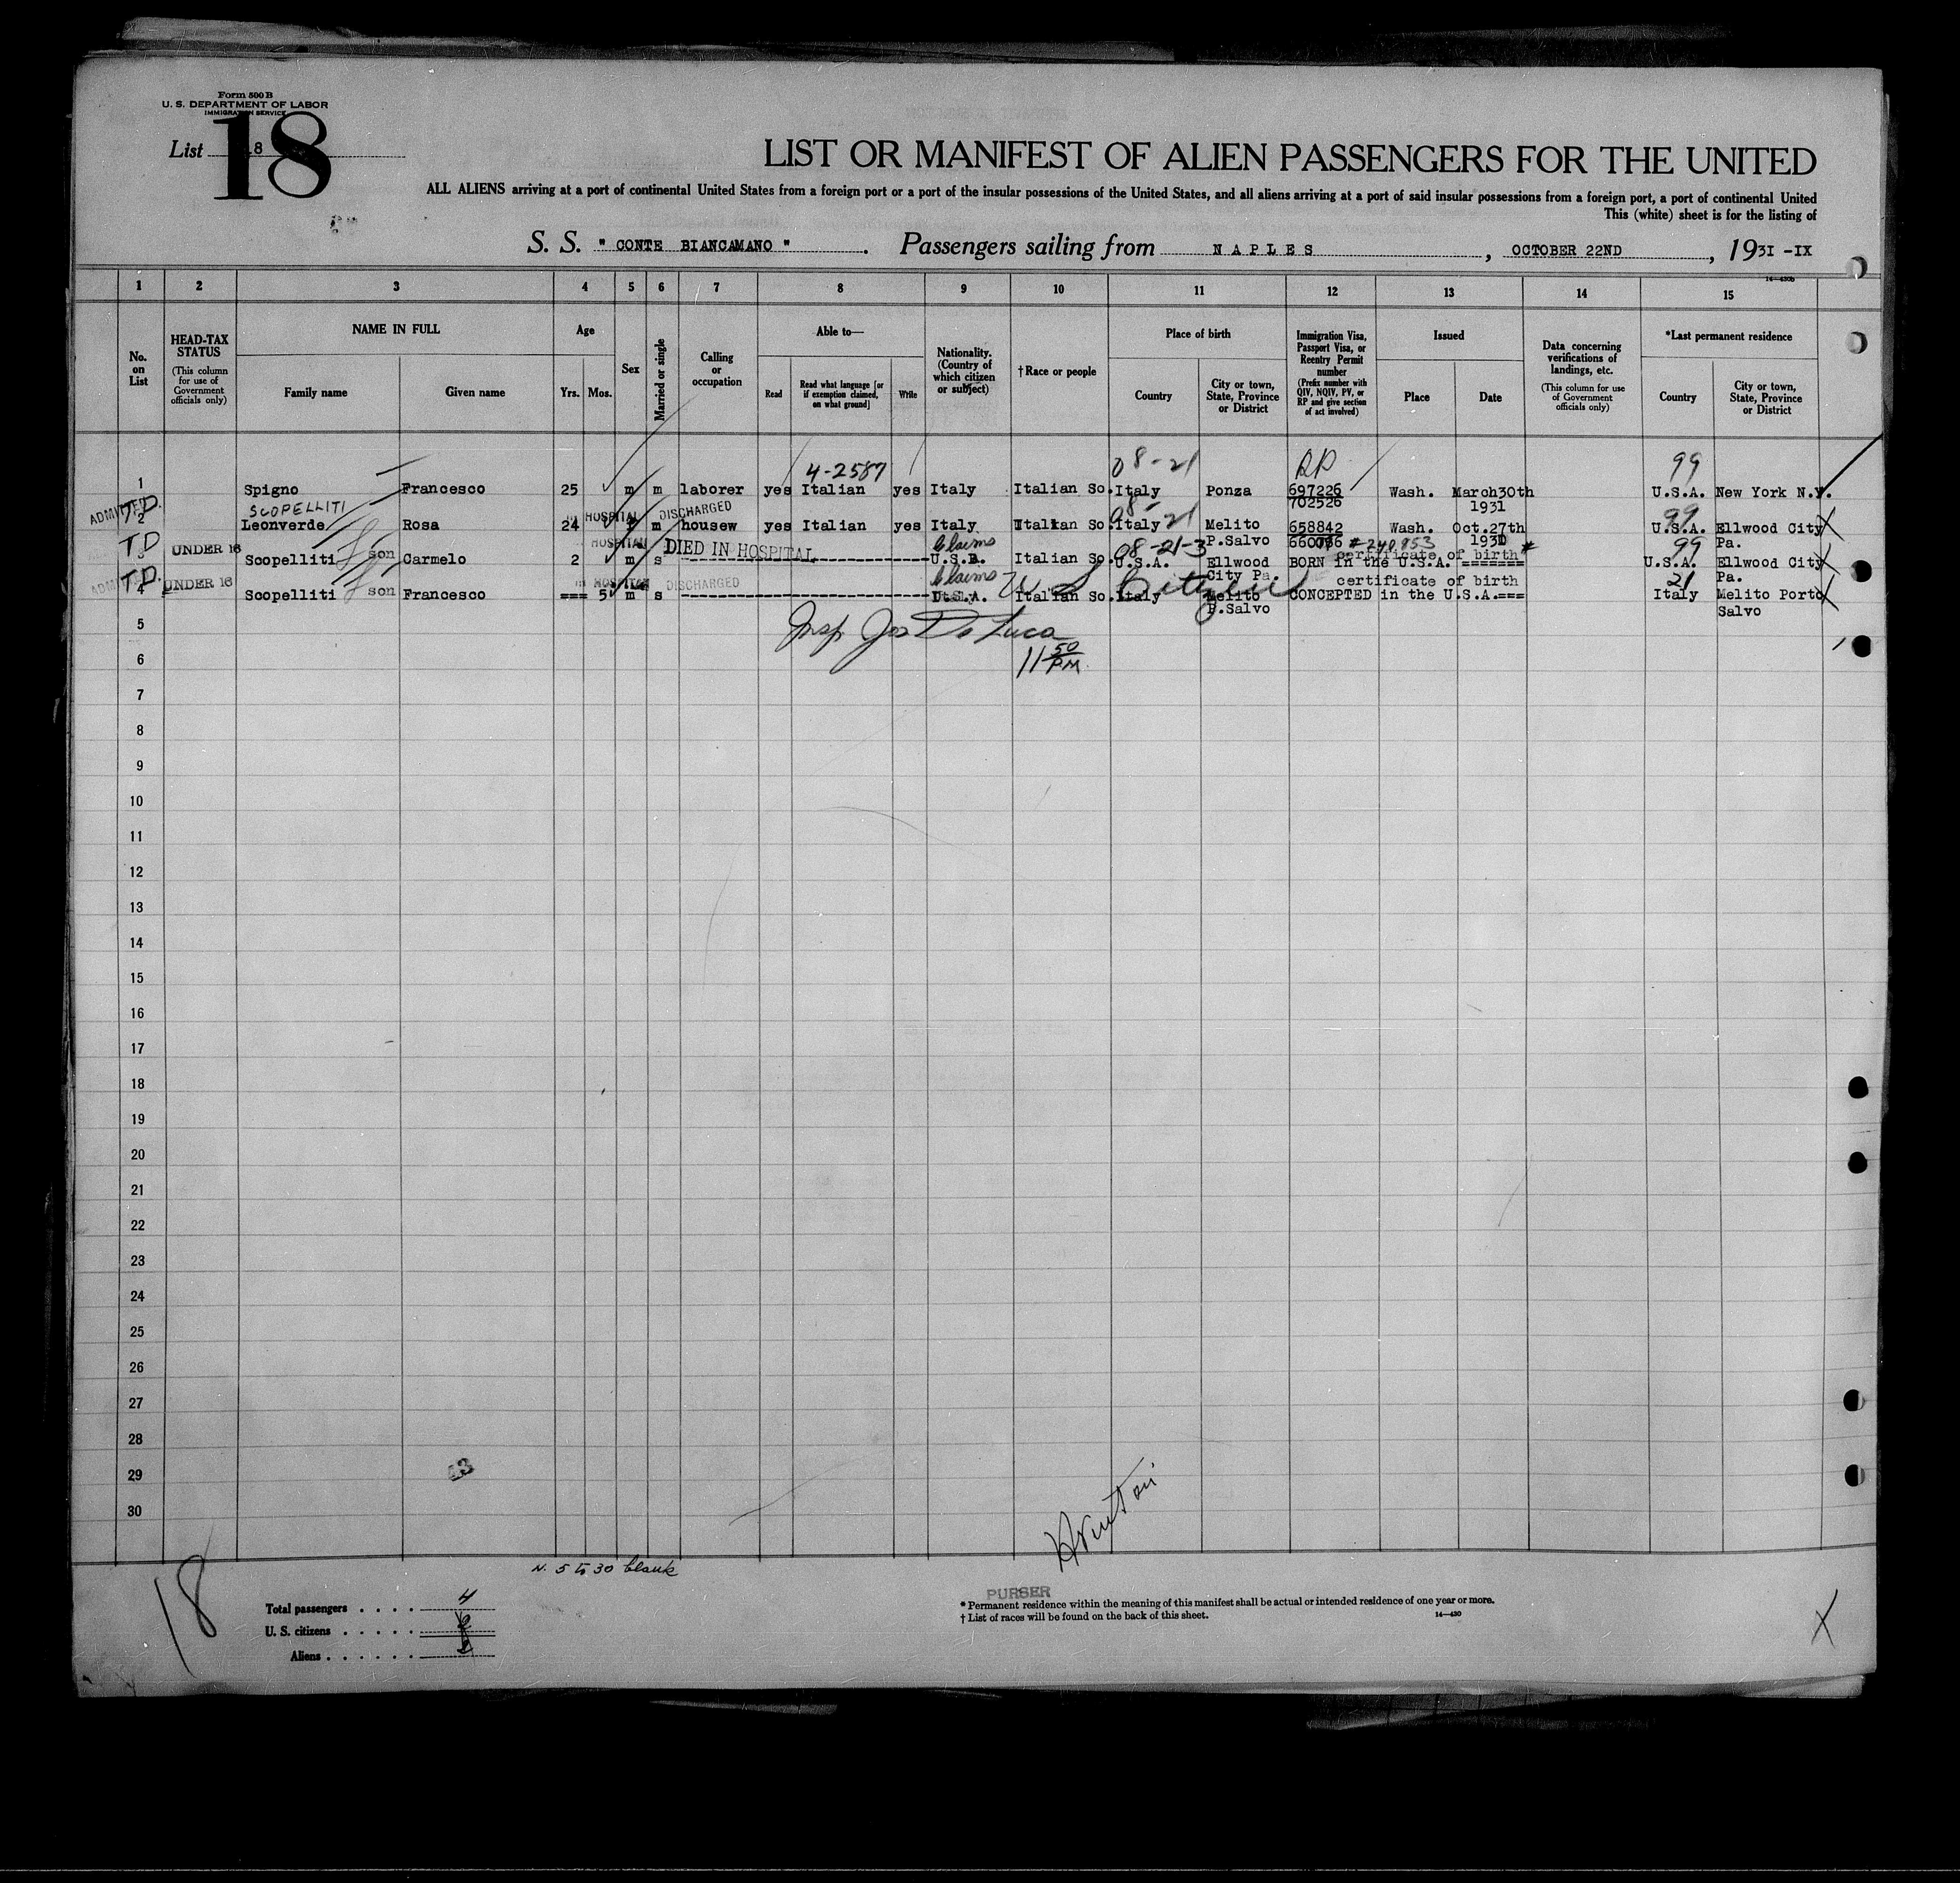 Form 500 B
U. S. DEPARTMENT OF LABOR
IMMIGRATION SERVICE
List 18
18
LIST OR MANIFEST OF ALIEN PASSENGERS FOR THE UNITED
ALL ALIENS arriving at a port of continental United States from a foreign port or a port of the insular possessions of the United States, and all aliens arriving at a port of said insular possessions from a foreign port, a port of continental United
This (white) sheet is for the listing of
S. S. " CONTE BIANCAMANO " . Passengers sailing from NAPLES , OCTOBER 22ND , 1931 -IX
14-430b
1 2 3 4 5 6 7 8 9 10 11 12 13 14 15
No. on List
HEAD-TAX STATUS (This column for use of Government officials only)
NAME IN FULL
Family name Given name
Age
Yrs. Mos.
Sex
Married or single
Calling or occupation
Able to—
Read Read what language [or if exemption claimed, on what ground] Write
Nationality. (Country of which citizen or subject)
†Race or people
Place of birth
Country City or town, State, Province or District
Immigration Visa, Passport Visa, or Reentry Permit number (Prefix number with QIV, NQIV, PV, or RP and give section of act involved)
Issued
Place Date
Data concerning verifications of landings, etc. (This column for use of Government officials only)
*Last permanent residence
Country City or town, State, Province or District
4-2587 08-21 RP 99
1 Spigno Francesco 25 m m laborer yes Italian yes Italy Italian So. Italy Ponza 697226 Wash. March30th U.S.A. New York N.Y.
702526 1931
SCOPELLITI
ADMITTED TD HOSPITAL DISCHARGED 08-21 99
2 Leonverde Rosa 24 f m housew yes Italian yes Italy Italian So. Italy Melito 658842 Wash. Oct.27th U.S.A. Ellwood City
P.Salvo 660086 1930 Pa.
TD UNDER 16 HOSPITAL DIED IN HOSPITAL Claims 08-21-3 # 240953 certificate of birth 99
3 Scopelliti son Carmelo 2 m s U.S.A. Italian So. U.S.A. Ellwood BORN in the U.S.A. ======= U.S.A. Ellwood City
City Pa. Pa.
TD UNDER 16 IN HOSPITAL DISCHARGED Claims U S Citizen certificate of birth 21
4 Scopelliti son Francesco === 5 m s U.S.A. Italian So. Italy Melito CONCEPTED in the U.S.A.=== Italy Melito Porto
P.Salvo Salvo
5
Insp Jos De Luca
6
11 50 PM
7
8
9
10
11
12
13
14
15
16
17
18
19
20
21
22
23
24
25
26
27
28
29
30
N. 5 to 30 blank
18
Total passengers . . . . 4
U. S. citizens . . . . .
Aliens . . . . . .
PURSER
* Permanent residence within the meaning of this manifest shall be actual or intended residence of one year or more.
† List of races will be found on the back of this sheet.
14—430
X